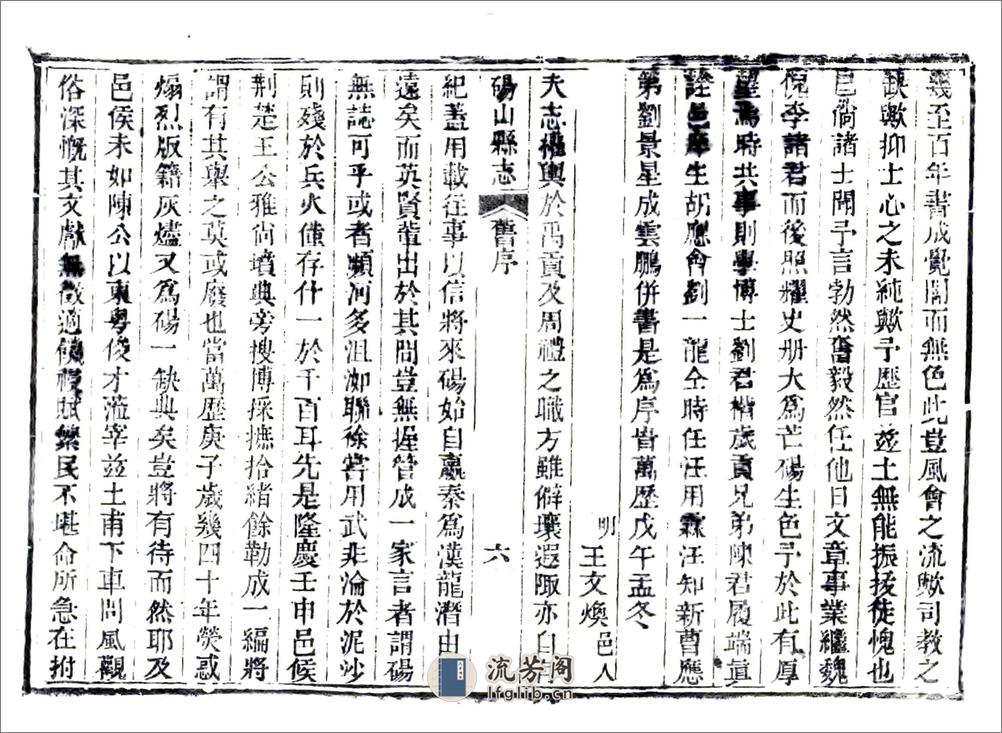 幾至百年書成覺闇而無色此豈風會之流歟司教之
缺歟抑士心之未純歟予歷官茲土無能振援徒愧也
邑倘諸士聞予言勃然奮毅然任他日文章事業繼魏
倪李諸君而後照耀史册大為芒碭生色予於此有厚
望焉時共事則學博士劉君楷歲貢兄弟陳君履端貢
邑庠生胡應會劉一龍仝時任汪用霖汪知新曹應
第劉景星成雲鵬併書是為序皆萬歷戊午孟冬
明王文煥邑人
夫志權輿於禹貢及周禮之職方雖僻壤遐陬亦自有
碭山縣志
舊序
六
紀蓋用載往事以信將來碭始自嬴秦為漢龍潛由
遠矣而英賢輩出於其間豈無握管成一家言者謂碭
無誌可乎或者瀕河多沮洳聯徐嘗用武非淪於泥沙
則殘於兵火僅存什一於千百耳先是隆慶壬申邑侯
荆楚王公雅尚墳典旁搜博採摭拾緒餘勒成一編將
謂有其舉之莫或廢也當萬歷庚子歲幾四十年熒惑
煽烈版籍灰燼又為碭一缺典矣豈將有待而然耶及
邑侯未如陳公以東粵俊才蒞宰茲土甫下車問風觀
俗深慨其文獻無徵適饑祲賦繁民不堪命所急在拊
流芳阁
lfglib.cn